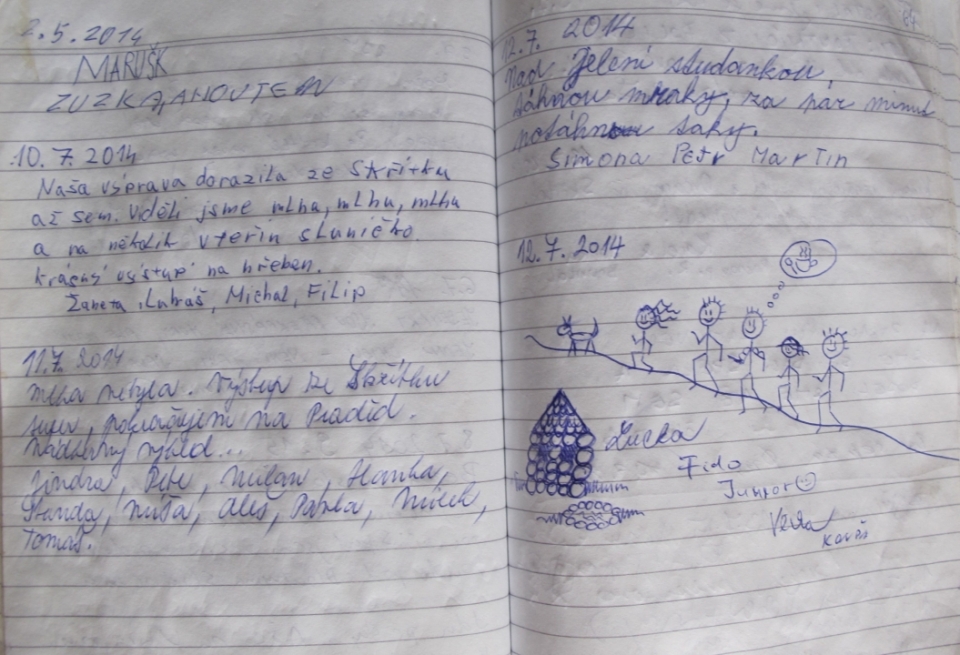 2.5.2014
MARUŠK
ZUZKA,
10.7.2014
Naša výprava dorazila ze Skřítku
až sem. Viděli jsme mlha, mlhu, mlhu
a na několik vteřin sluníčko.
Krásný výstup na hřeben.
Žaneta, Lukáš, Michal, Filip
11.7. 2014
Mlha nebyla. Výstup ze Skřítku
super, pokračujem na Praděd.
Nádherný výhled...
Jindra, Pepe, Milan, Hanka,
Standa, Míša, Aleš, Pavla, Mílek,
Tomáš.
64
12.7. 2014
Nad Jelení studánkou,
táhnou mraky, za pár minut
natáhnou saky.
Simona Petr Martin
12.7.2014
Lucka
Fido
Junior
Verča